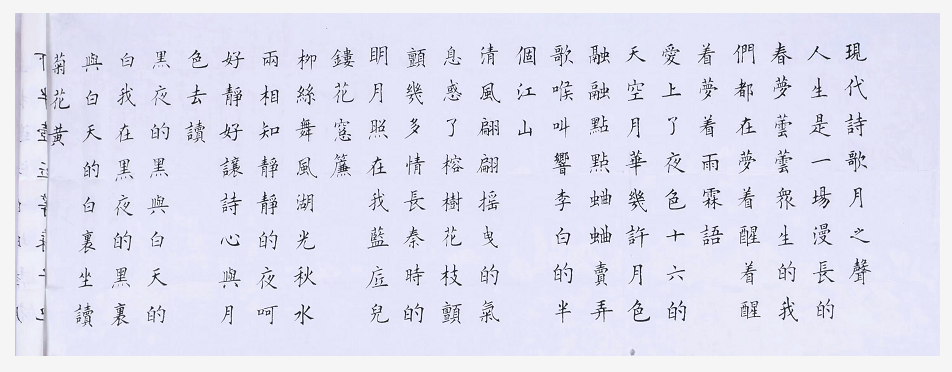 現代詩歌月之聲
人生是一場漫長的
春夢曇曇眾生的我
們都在夢着醒着醒
着夢着雨霖語
愛上了夜色十六的
天空月華幾許月色
融融點點蛐蛐賣弄
歌喉叫響李白的半
個江山
清風翩翩搖曳的氣
息惑了榕樹花枝顫
顫幾多情長秦時的
明月照在我藍店兒
鏤花窓簾
柳絲舞風湖光秋水
兩相知靜靜的夜呵
好靜好讓詩心與月
色去讀
黑夜的黑與白天的
白我在黑夜的黑裏
與白天的白裏坐讀
菊花黄